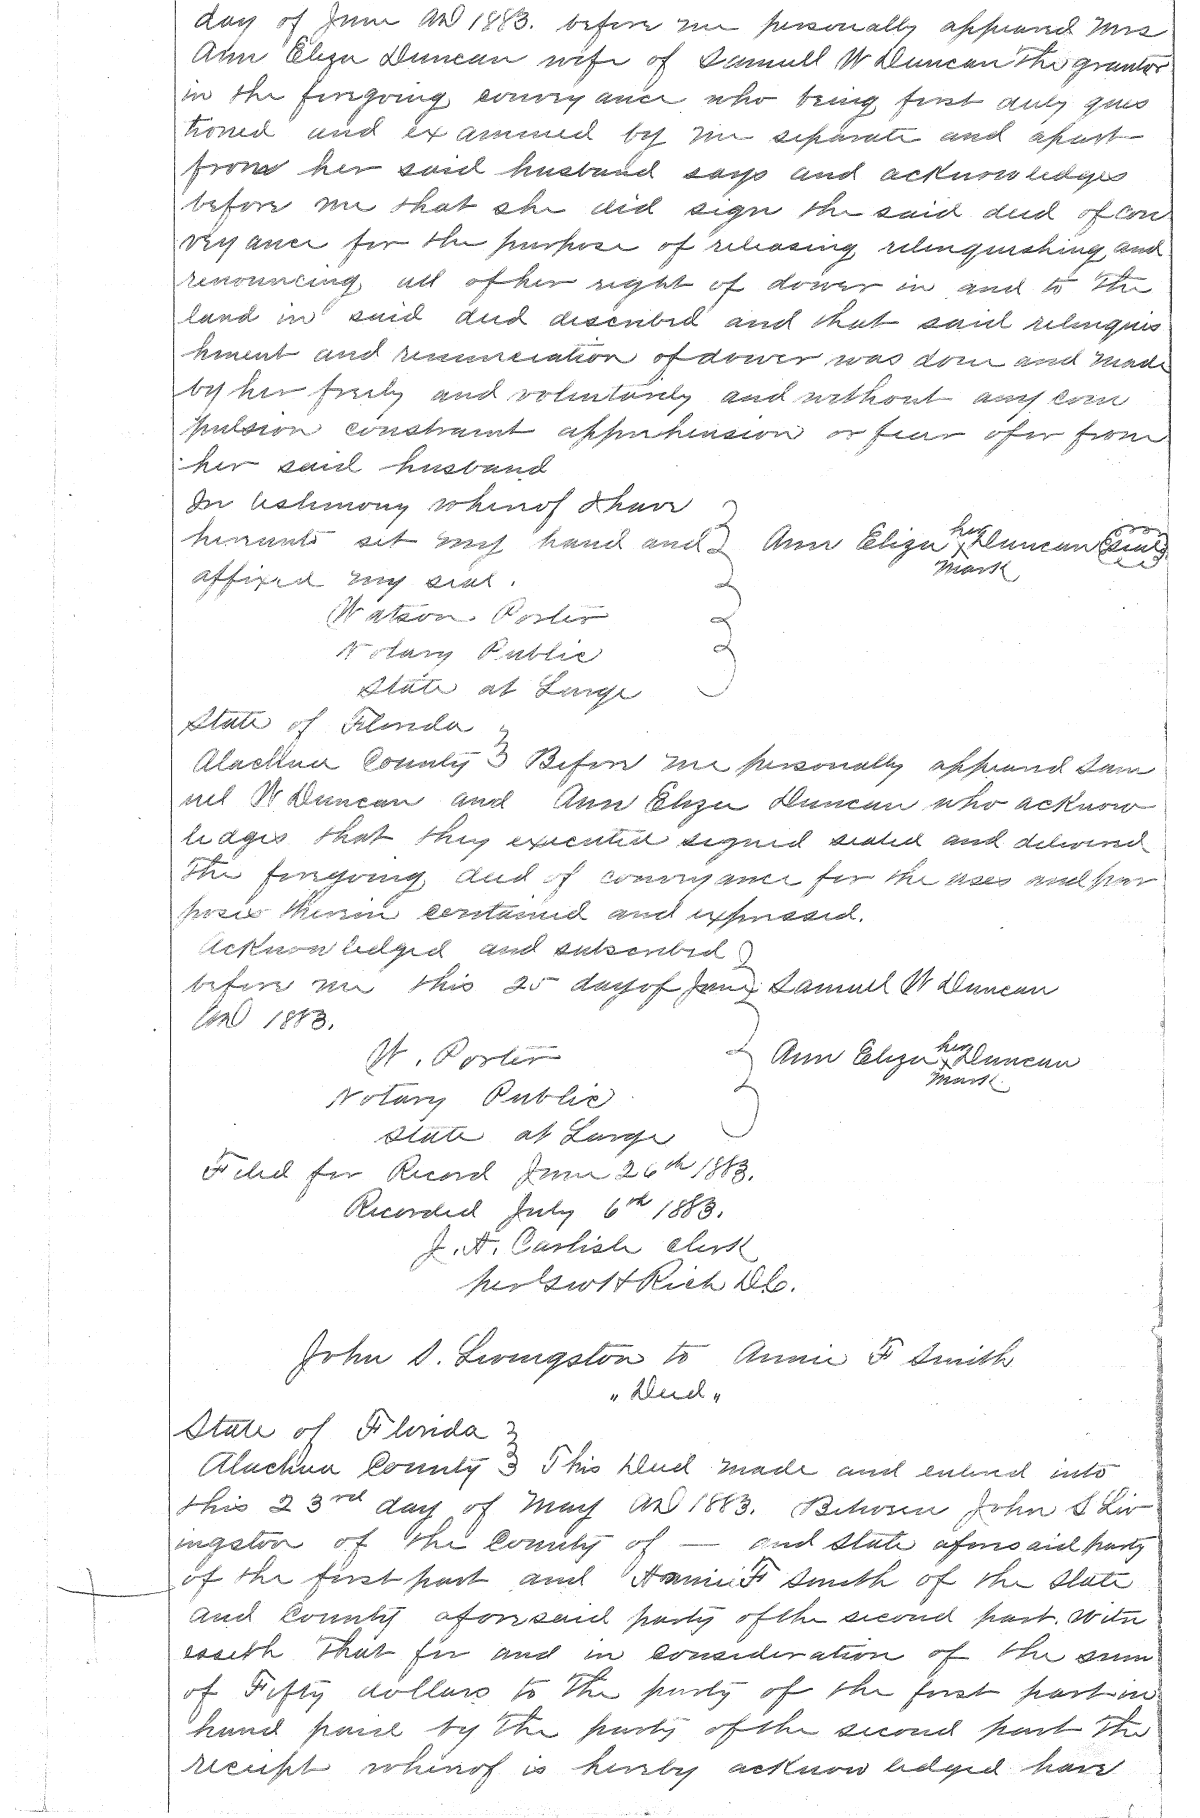 day of June AD 1883. before me personally appeared Mrs
Ann Eliza Duncan wife of Samuel W Duncan the grantor
in the foregoing conveyance who being first duly ques
tioned and examined by me separate and apart
from her said husband says and acknowledges
before me that she did sign the said deed of con
veyance for the purpose of releasing relinquishing and
renouncing all of her right of dower in and to the
land in said deed described and that said relinquis
hment and renunciation of dower was done and made
by her freely and voluntarily and without any com
pulsion constraint apprehension or fear of or from
her said husband
In testimony whereof I have
hereunto set my hand and
affixed my seal.
Ann Eliza her x mark Duncan (seal)
Watson Porter
Notary Public
State at Large
State of Florida
Alachua County Before me personally appeared Sam
uel W Duncan and Ann Eliza Duncan who acknow
ledges that they executed signed sealed and delivered
the foregoing deed of conveyance for the uses and pur
poses therein contained and expressed.
Acknowledged and subscribed
before me this 25 day of June Samuel W Duncan
AD 1883.
W. Porter Ann Eliza her x mark Duncan
Notary Public
State at Large
Filed for Record June 26th 1883.
Recorded July 6th 1883.
J. A. Carlisle Clerk
per Geo H Rich D.C.
John S. Livingston to Annie F Smith
"Deed"
State of Florida
Alachua County This Deed made and entered into
this 23rd day of May AD 1883. Between John S Liv
ingston of the County of — and State aforesaid party
of the first part and Annie F Smith of the State
and County aforesaid party of the second part. Witn
esseth that for and in consideration of the sum
of Fifty dollars to the party of the first part in
hand paid by the party of the second part the
receipt whereof is hereby acknowledged have